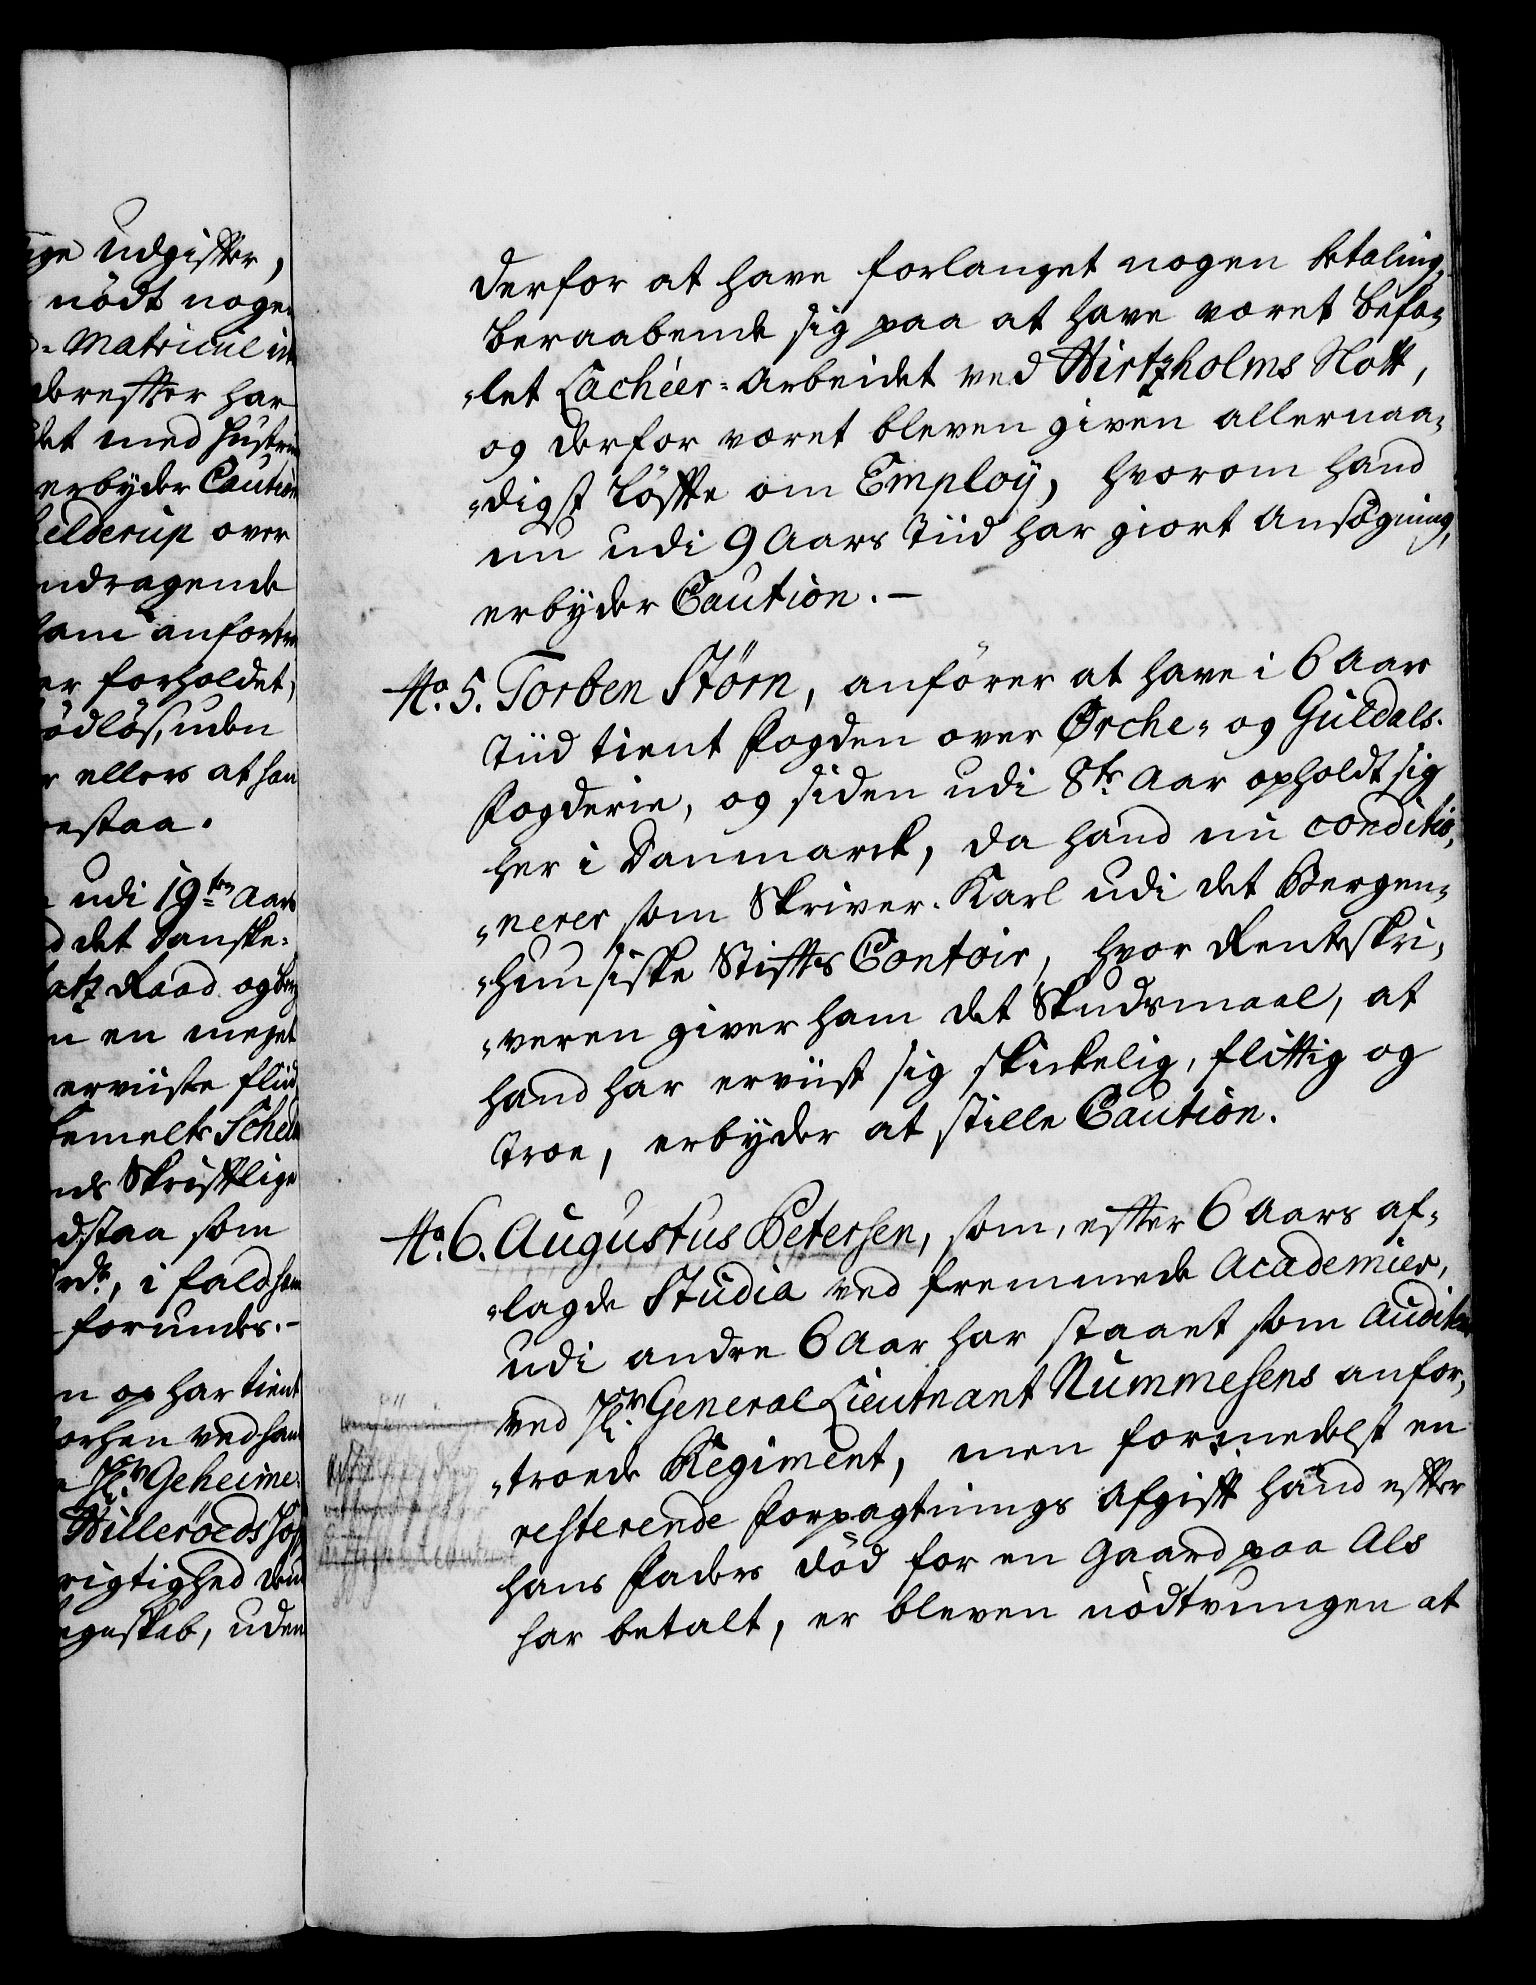 ige Udgifter,
nödt nogen
Matricul
derefter har
det med Hustrue
erbyder Caution
elderup over
ndragende
ham anfortro
er forholdet,
ödlös, uden
r ellers at han
estaa.
udi 19de Aars
d det Danske
atz Raad og
n en meget
erviiste fliid
bemelte
nds Skrifftlige
dstaa som
i fald han
forundes.
n og har tient
forhen ved
Hr. Geheime
Hilleröeds
rigtighed
egnskab, uden
derfor at have forlanget nogen betaling,
beraabende sig paa at have været befa-
"let Cachéer-Arbeidet ved Hirtzholms Slott,
og derfor været bleven given allernaa-
"digst Löffte om Employ, hvorom hand
nu udi 9 Aars Tiid har giort Ansögning,
erbyder Caution.-
No. 5. Torben Störn, anförer at have i 6 Aar
Tiid tient Fogden over Ørche- og Guldals-
Fogderie, og siden udi 8te Aar opholdt sig
her i Danmarck, da hand nu conditio-
"nerer som Skriver-Karl udi det Bergen-
"huusiske Stiffts Contoir, hvor Renteskri-
"veren giver ham det Skudsmaal, at
hand har erviist sig skickelig, flittig og
troe, erbyder at stille Caution.
No. 6. Augustus Petersen, som, efter 6 Aars af-
"lagde Studia ved fremmede Academier,
udi andre 6 Aar har staaet som Auditeur
ved Hr. General Lieutnant Nummesens anfor-
"troede Regiment, men formedelst en
resterende Forpagtnings Afgift hand efter
hans Faders död for en Gaard paa Als
har betalt, er bleven nödtvungen at